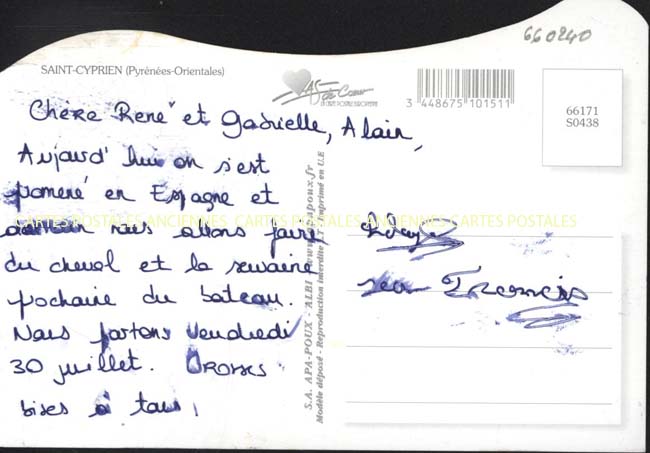 660240
SAINT-CYPRIEN (Pyrénées-Orientales)
AS de Coeur
LA CARTE POSTALE EUROPEENNE
3 448675 101511
66171
S0438
Chère René et Gabrielle, Alain,
Aujourd'hui on s'est
pomené en Espagne et
nous allons faire
du cheval et la semaine
pochaine du bateau.
Nous partons Vendredi
30 juillet. Grosses
bises à tous,
Francis
CARTES POSTALES ANCIENNES CARTES POSTALES ANCIENNES CARTES POSTALES
S.A. APA-POUX - ALBI - www.apapoux.fr
Modèle déposé - Reproduction interdite - Imprimé en U.E